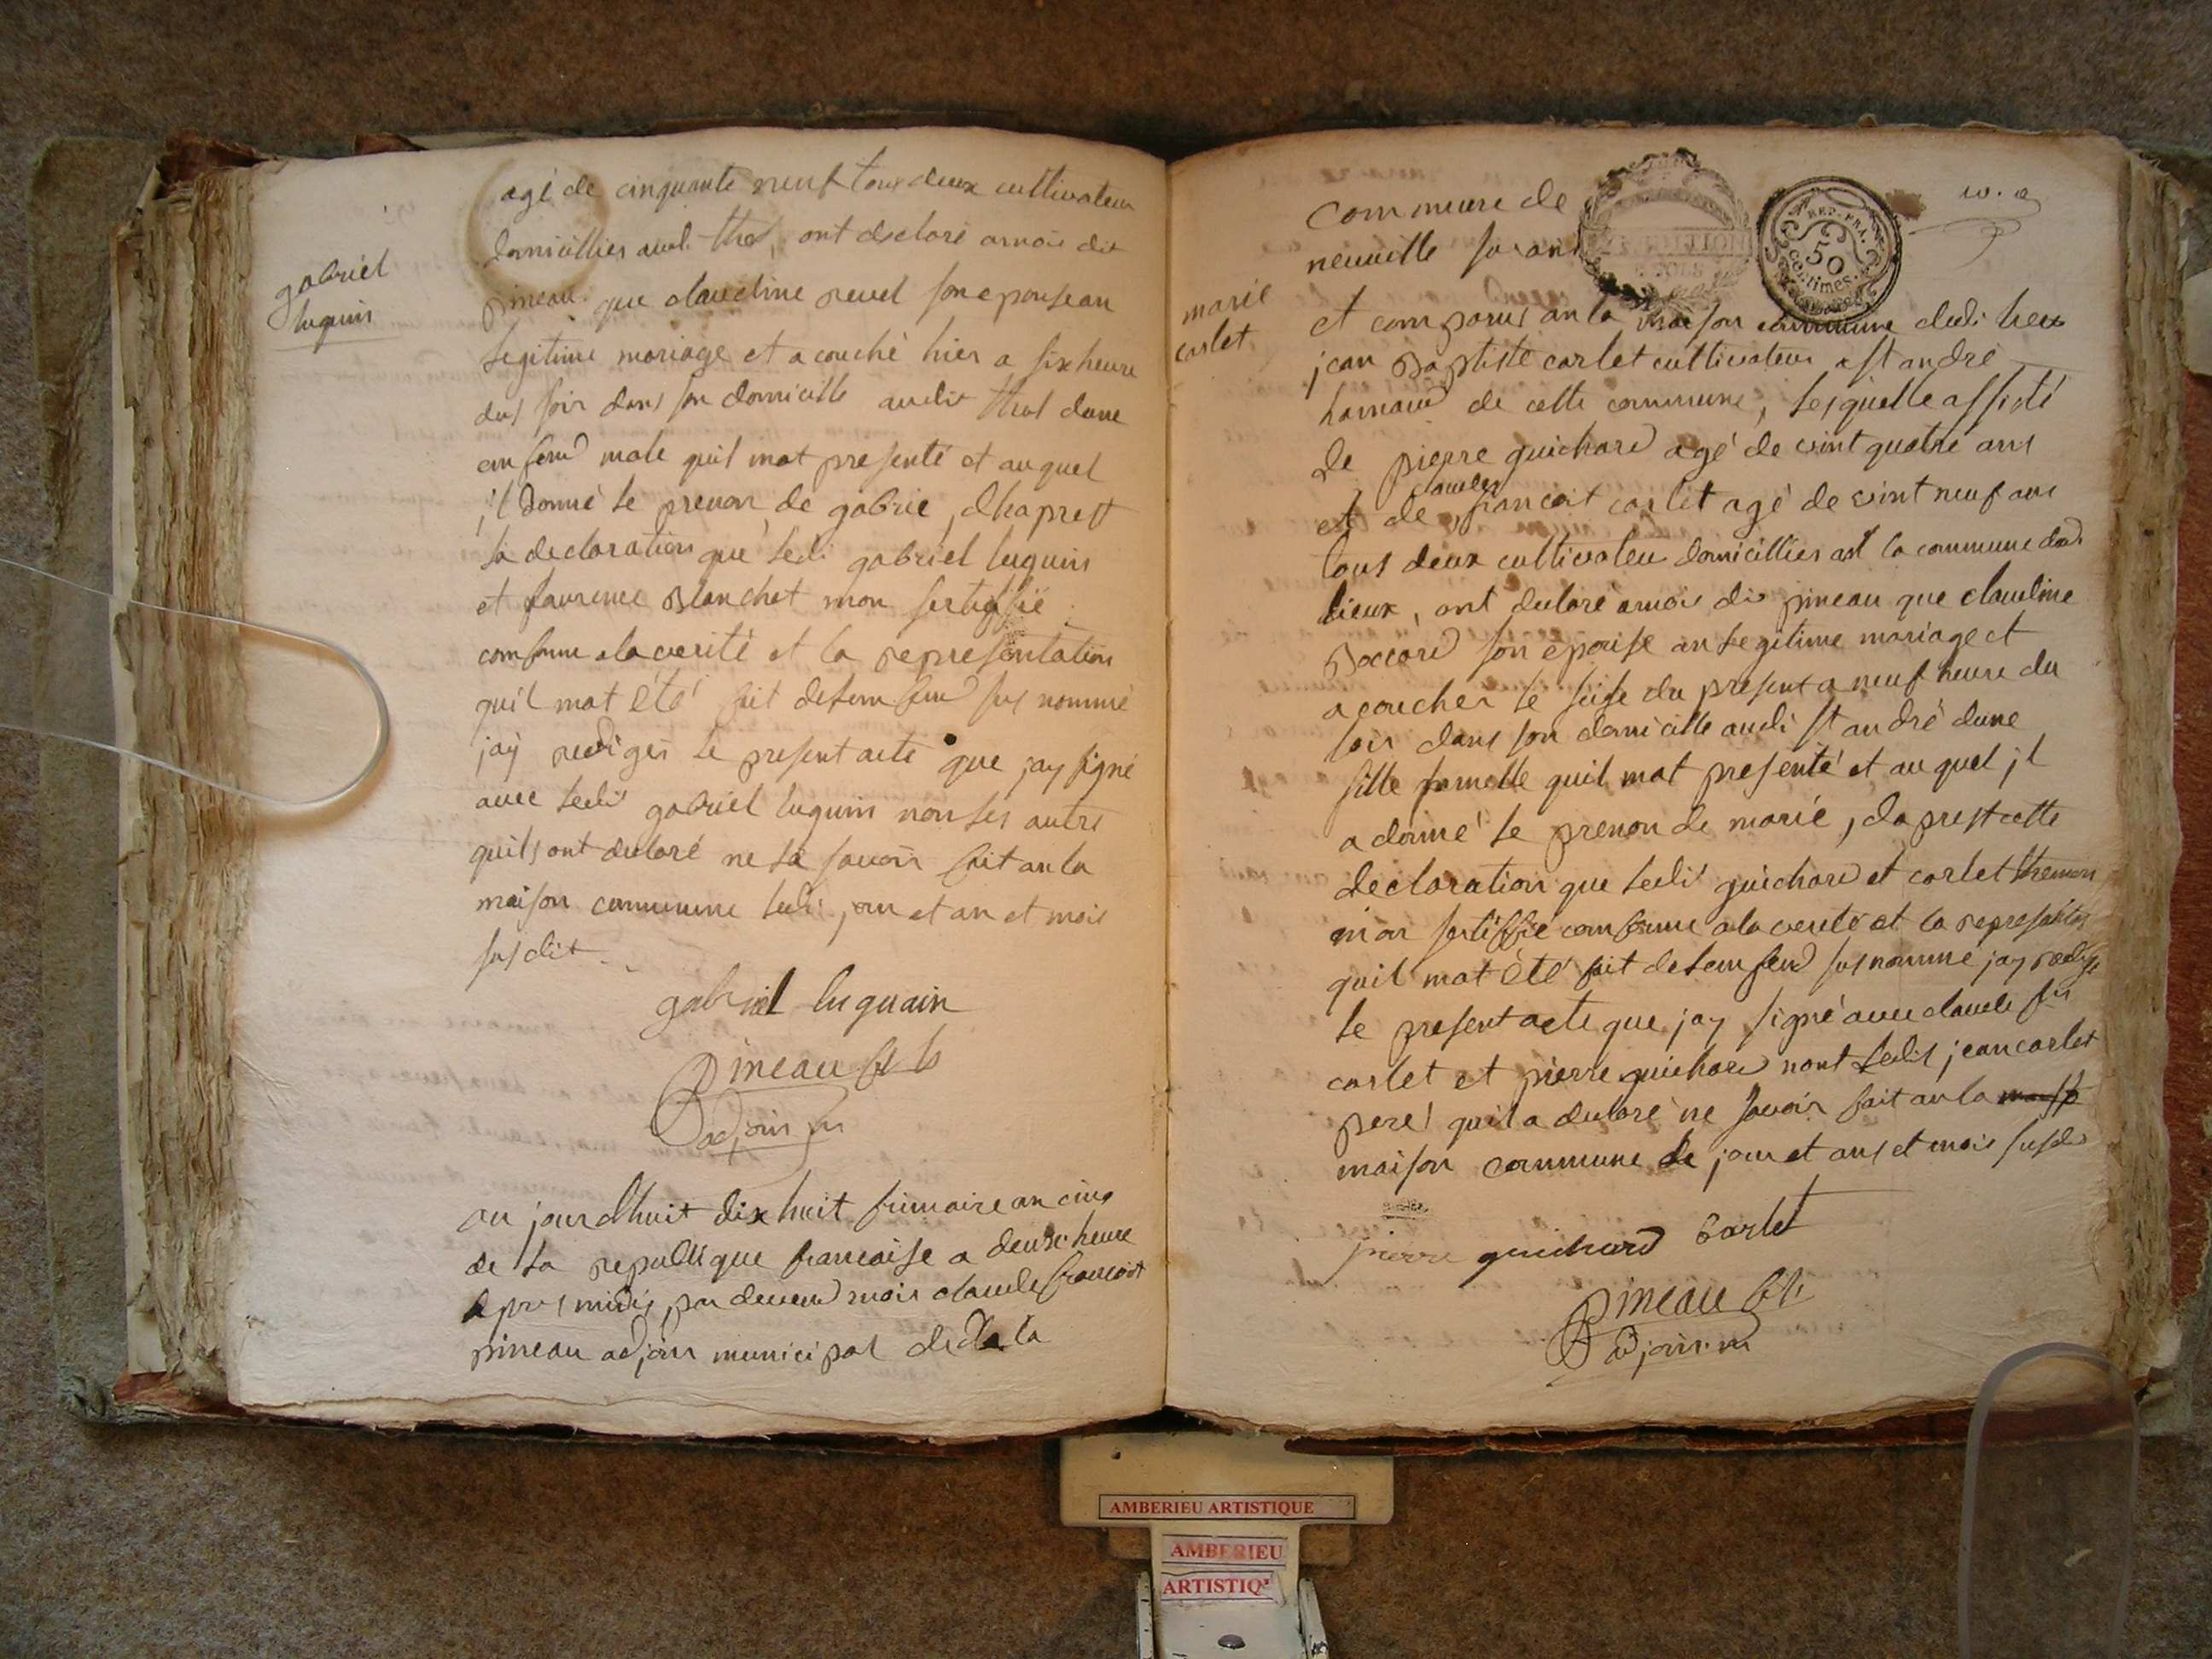 gabriel
luquin
agé de cinquante neuf tous deux cultivateur
domicillies audi thol, ont declaré amois dit
pineau que claudine revel son epouse an
legitime mariage et acouché hier a six heure
dus soir dans son domicille audit thol dune
enfend male quil mat presenté et auquel
il donné le prenon de gabrie, dhaprest
la declaration que ledi gabriel luquin
et laurence Blanchet mon sertiffié
comforme alaverité et la representation
quil mat été fait delenfend sus nommé
jaÿ rediger le present acte que jay signé
avec ledit gabriel luquin non les autre
quils ont declaré ne la savoir fait anla
maison commune ledi jour et an et mois
susdit
gabriel luquain
Pineau fils
adjoin m
au jourdhuit dix huit frimaire an cinq
de la republique francaise a deuxe heure
apres midis par devend mois claude francoit
pineau adjoin municipal de la
marie
carlet
Commune de
neuville sur ain
REP. FRA.
50
centimes
et comparus anla maison commune dudi lieu
jean Baptiste carlet cultivateur a st andré
hamaud de cette commune, lesquelle assisté
de pierre guichard agé de vint quatre ans
claude
et de francoit carlet agé de vint neuf ans
tous deux cultivateu domicillies a la commune du
lieux, ont declaré amois dit pineau que claudine
Boccard son epouse an legitime mariage et
acoucher le seise du present a neuf heure du
soir dans son domicille audi st andré dune
fille femelle quil mat presenté et au quel jl
a donné le prenon de marie, daprest cette
declaration que ledi guichard et carlet
mon sertiffié comforme ala verité et la
quil mat été fait delenfend sus nommé jay redige
le present acte que jay signé avec claude fr
carlet et pierre guichard nont ledit jean carlet
pere quil a declaré ne savoir fait anla
maison commune le jour et ans et mois susdi
pierre guichard Carlet
Pineau fils
adjoin m
AMBERIEU ARTISTIQUE
AMBERIEU
ARTISTIQ